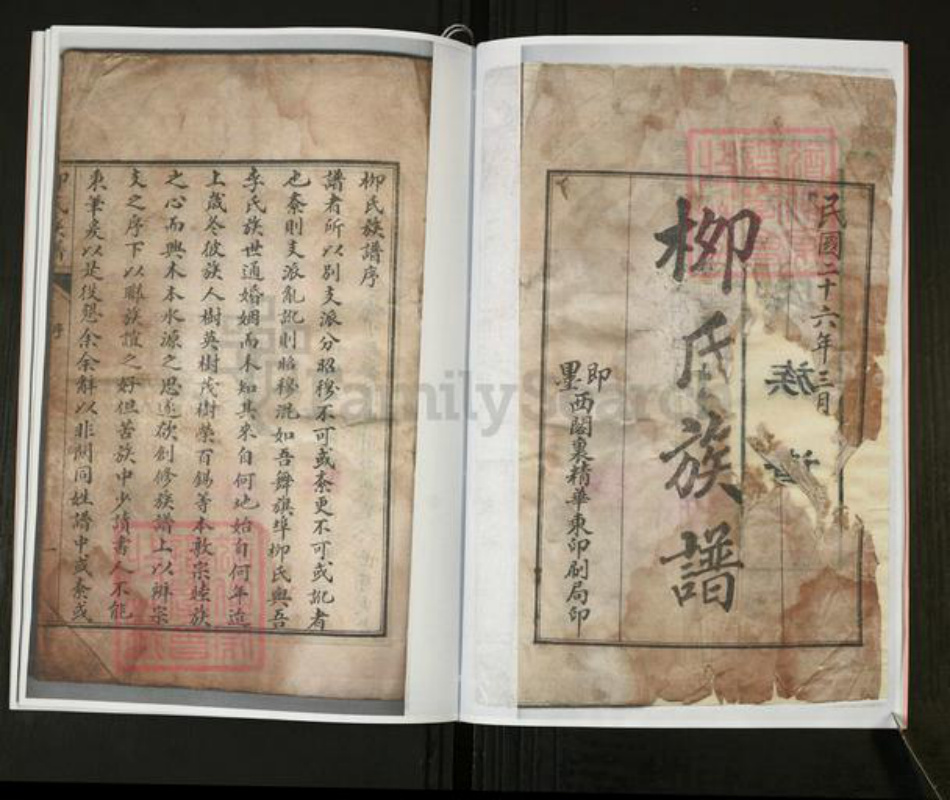 民國二十六年三月
柳氏族譜
即墨西關裏精華東印刷局印
柳氏族譜序
譜者所以別支派分昭穆不可或紊更不可或訛者
也紊則支派亂訛則昭穆混如吾舞旗埠柳氏與吾
李氏族世通婚姻而未知其来自何地始自何年迨
上歲冬彼族人樹英樹茂樹榮百錫等本敦宗睦族
之心而興木本水源之思遂欲創修族譜上以辨宗
支之序下以聯族誼之好但苦族中少讀書人不能
秉筆爰以是役懇余余辭以非關同姓譜中或紊或
FamilySearch